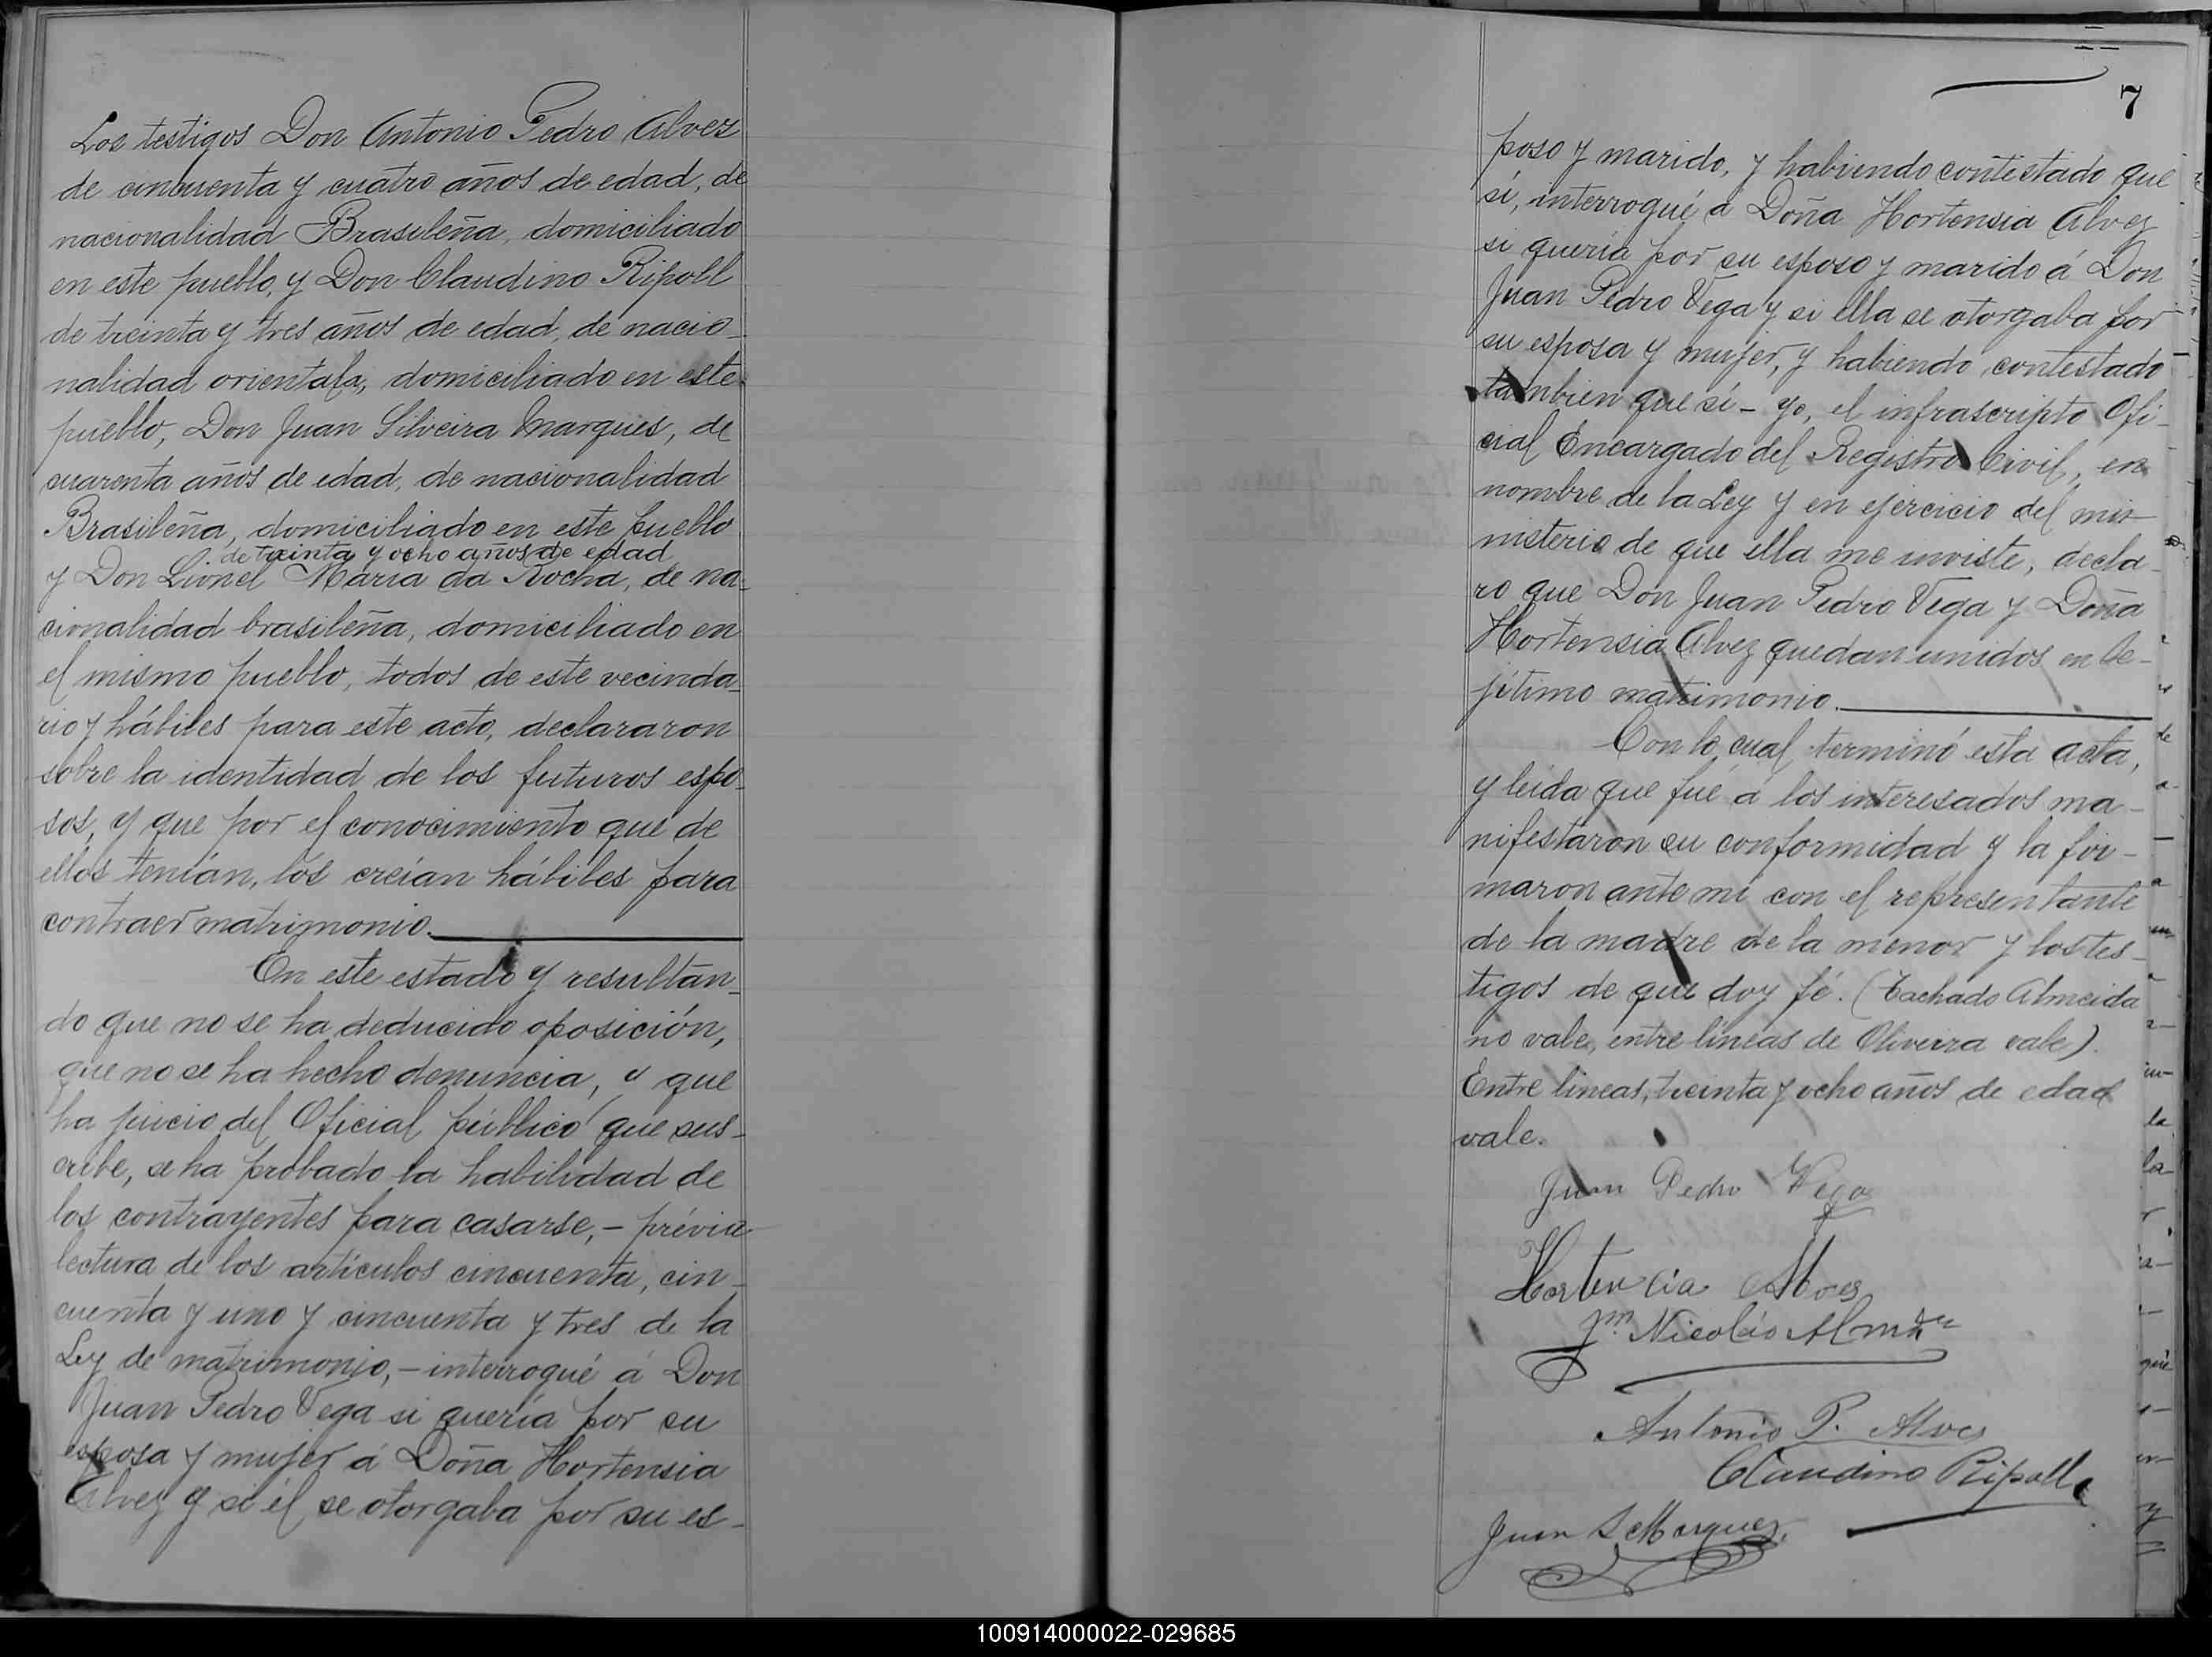 Los testigos Don Antonio Pedro Alvez
de cincuenta y cuatro años de edad, de
nacionalidad Brasileña, domiciliado
en este pueblo, y Don Claudino Ripoll
de treinta y tres años de edad, de nacio-
nalidad oriental, domiciliado en este
pueblo, Don Juan Silveira Marques, de
cuarenta años de edad, de nacionalidad
Brasileña, domiciliado en este pueblo
de treinta y ocho años de edad
y Don Lionel Maria da Rocha, de na-
cionalidad brasileña, domiciliado en
el mismo pueblo, todos de este vecinda-
rio y hábiles para este acto, declararon
sobre la identidad de los futuros espo-
sos, y que por el conocimiento que de
ellos tenían, los creían hábiles para
contraer matrimonio.
En este estado y resultan-
do que no se ha deducido oposición,
que no se ha hecho denuncia, y que
ha juicio del Oficial público que sus-
cribe, se ha probado la habilidad de
los contrayentes para casarse, - prévia
lectura de los artículos cincuenta, cin-
cuenta y uno y cincuenta y tres de la
Ley de matrimonio, - interrogué á Don
Juan Pedro Vega si quería por su
esposa y mujer á Doña Hortensia
Alvez y si él se otorgaba por su es-
7
poso y marido, y habiendo contestado que
sí, interrogué á Doña Hortensia Alvez
si quería por su esposo y marido á Don
Juan Pedro Vega y si ella se otorgaba por
su esposa y mujer, y habiendo contestado
tambien que sí - yo, el infrascripto Ofi-
cial Encargado del Registro Civil, en
nombre de la Ley y en ejercicio del mi-
nisterio de que ella me inviste, decla-
ro que Don Juan Pedro Vega y Doña
Hortensia Alvez quedan unidos en le-
jítimo matrimonio.
Con lo cual terminó esta acta,
y leida que fué á los interesados ma-
nifestaron su conformidad y la fir-
maron ante mi con el representante
de la madre de la menor y los tes-
tigos de que doy fé. (Tachado Almeida
no vale, entre lineas de Oliveira vale).
Entre lineas, treinta y ocho años de edad
vale.
Juan Pedro Vega
Hortencia Alves
Jn Nicolás
Antonio P. Alves
Claudino Ripoll
Juan S Marquez
100914000022-029685